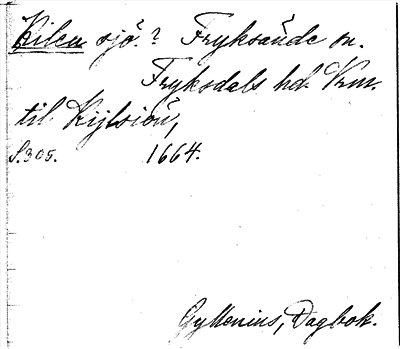 Kilen sjö.? Fryksände sn.
Fryksdals hd. Vrm.
til Kijlsiön,
S. 305. 1664.
Gyllenius, Dagbok.